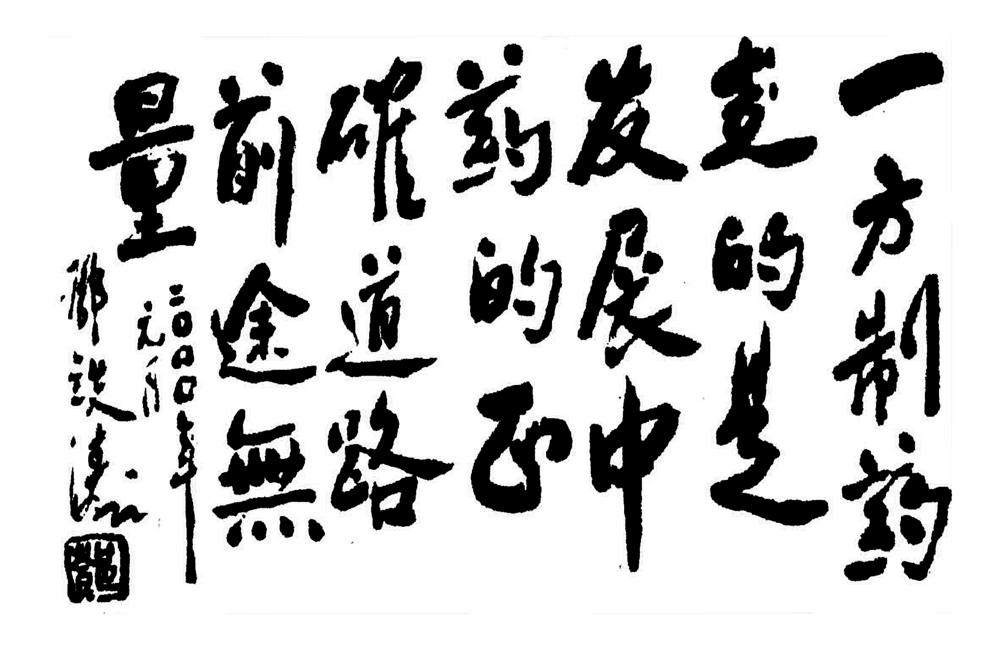 一方制药
走的是
发展中
药的正
確道路
前途無
量
二〇〇〇年
元月
鄧鉄濤